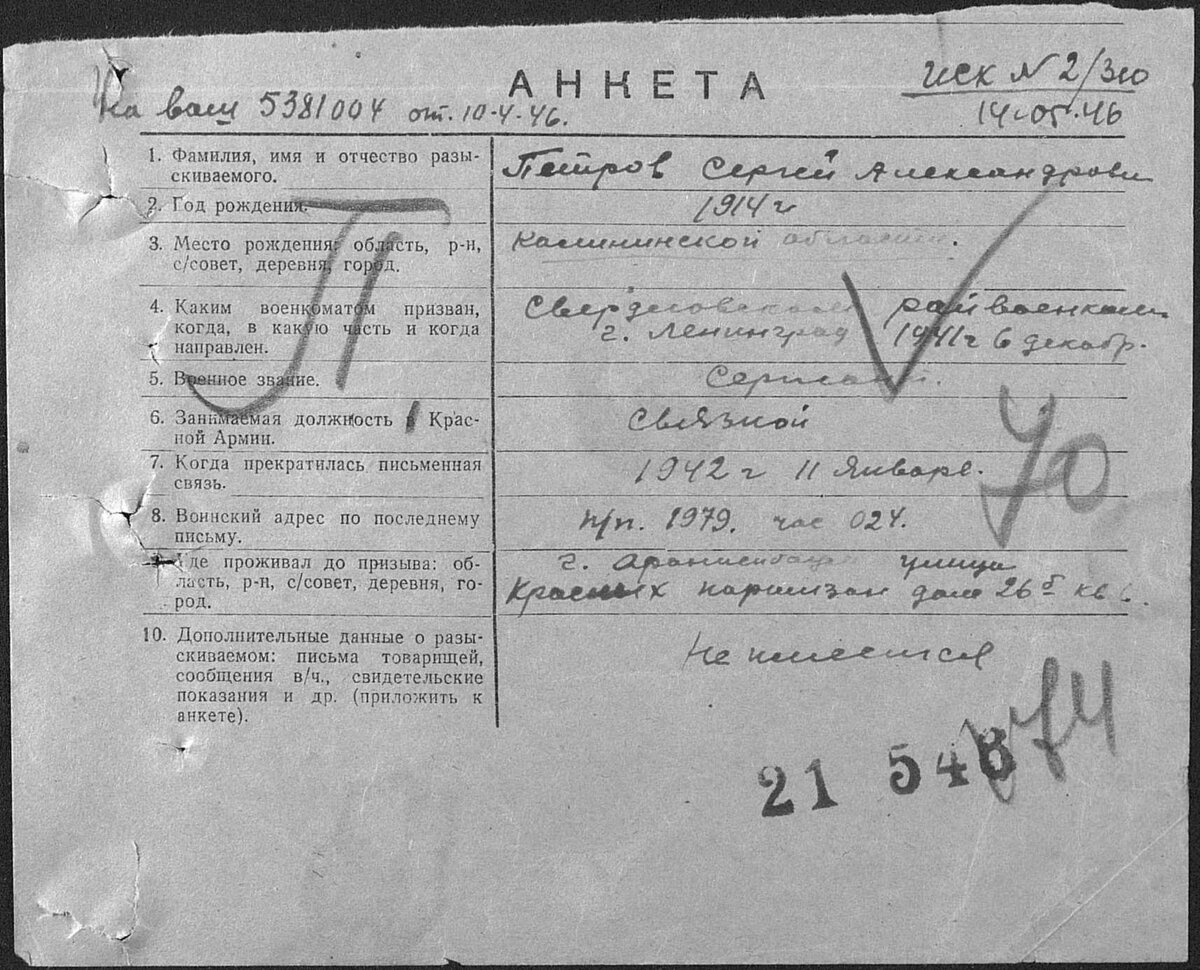 АНКЕТА
исх N 2/310
На ваш 5381004 от. 10-4-46.
14-05-46
1. Фамилия, имя и отчество разы-
скиваемого.
Петров Сергей Александрович
2. Год рождения.
1914 г
3. Место рождения: область, р-н,
с/совет, деревня, город.
Калининской области.
4. Каким военкоматом призван,
когда, в какую часть и когда
направлен.
Свердловским райвоенком
г. Ленинград 1941 г 6 декабр.
5. Военное звание.
Сержант.
6. Занимаемая должность в Крас-
ной Армии.
Связной
7. Когда прекратилась письменная
связь.
1942 г 11 Январе.
8. Воинский адрес по последнему
письму.
п/п. 1979. час 024.
9. Где проживал до призыва: об-
ласть, р-н, с/совет, деревня, го-
род.
г. улица
Красных партизан дом 26б кв 6.
10. Дополнительные данные о разы-
скиваемом: письма товарищей,
сообщения в/ч., свидетельские
показания и др. (приложить к
анкете).
Не имеется
П
21 548